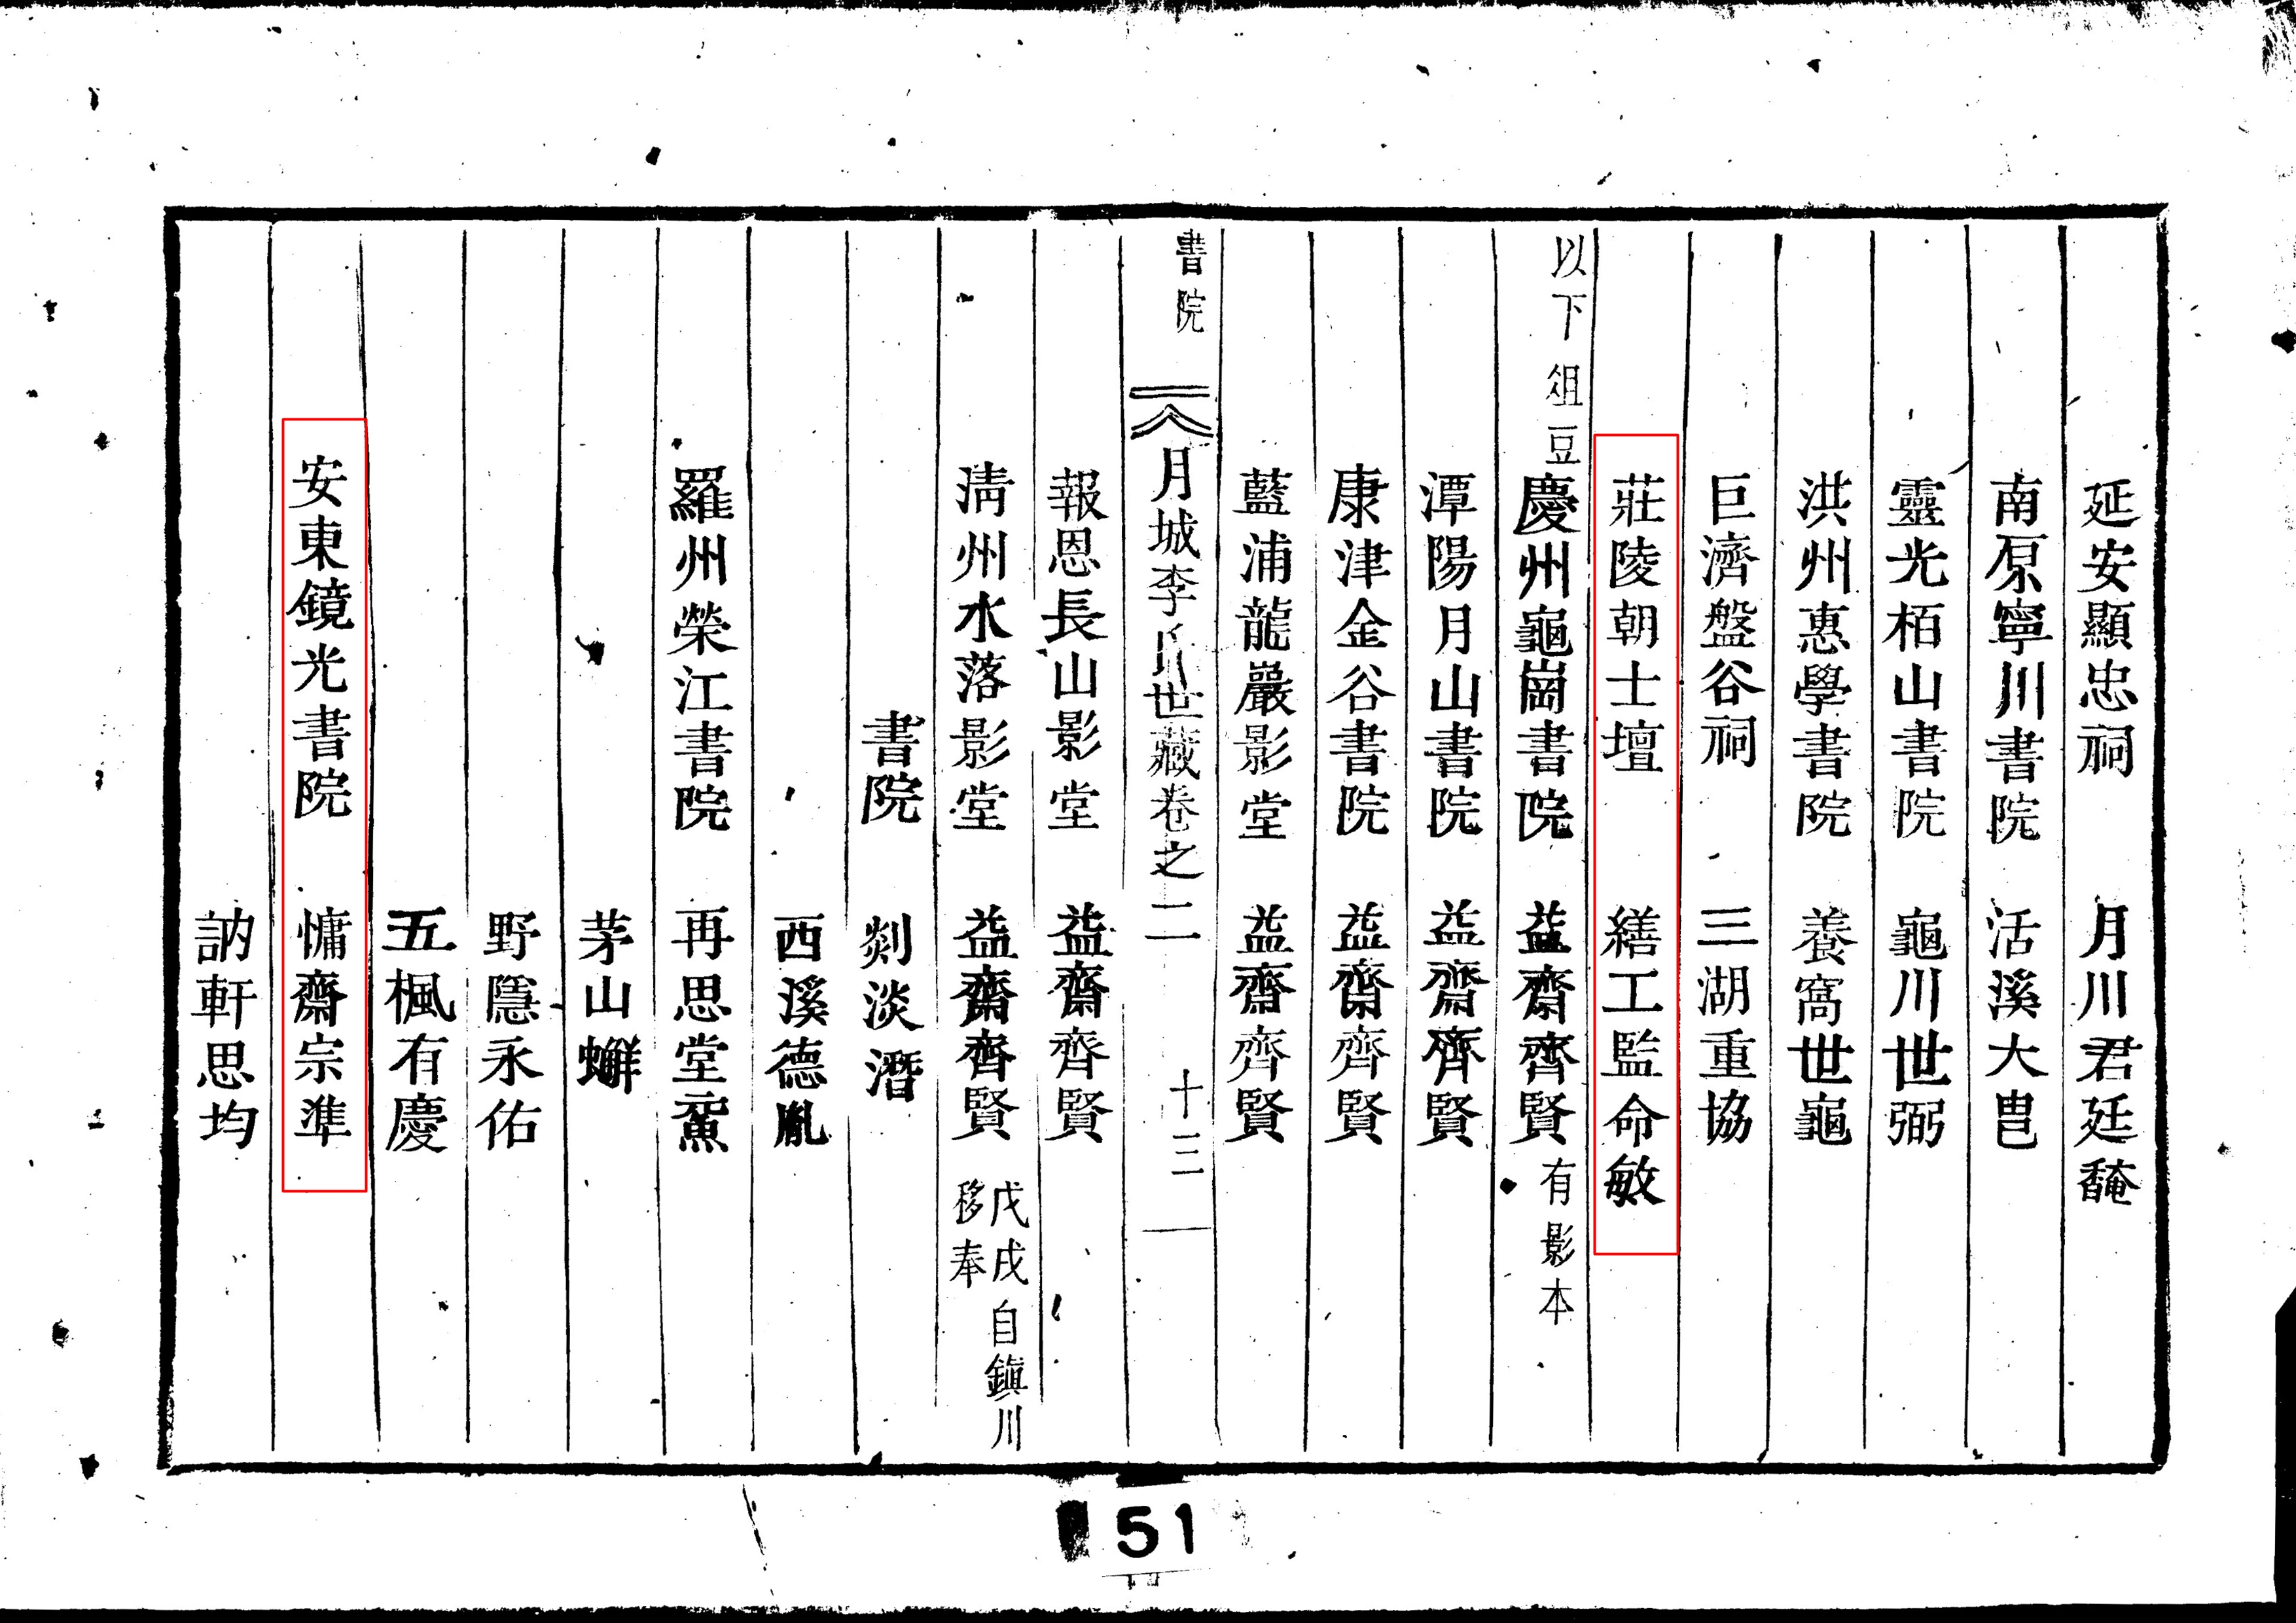 延安顯忠祠 月川君廷馣
南原寧川書院 活溪大𤰇
靈光栢山書院 龜川世弼
洪州惠學書院 養窩世龜
巨濟盤谷祠 三湖重協
莊陵朝士壇 繕工監命敏
以下俎豆
慶州龜崗書院 益齋齊賢 有影本
潭陽月山書院 益齋齊賢
康津金谷書院 益齋齊賢
藍浦龍巖影堂 益齋齊賢
書院 月城李氏世藏卷之二 十三
報恩長山影堂 益齋齊賢
淸州水落影堂 益齋齊賢 戊戌自鎭川
移奉
書院 剡淡潛
西溪德胤
羅州榮江書院 再思堂黿
茅山
野隱永佑
五楓有慶
安東鏡光書院 慵齋宗準
訥軒思均
51